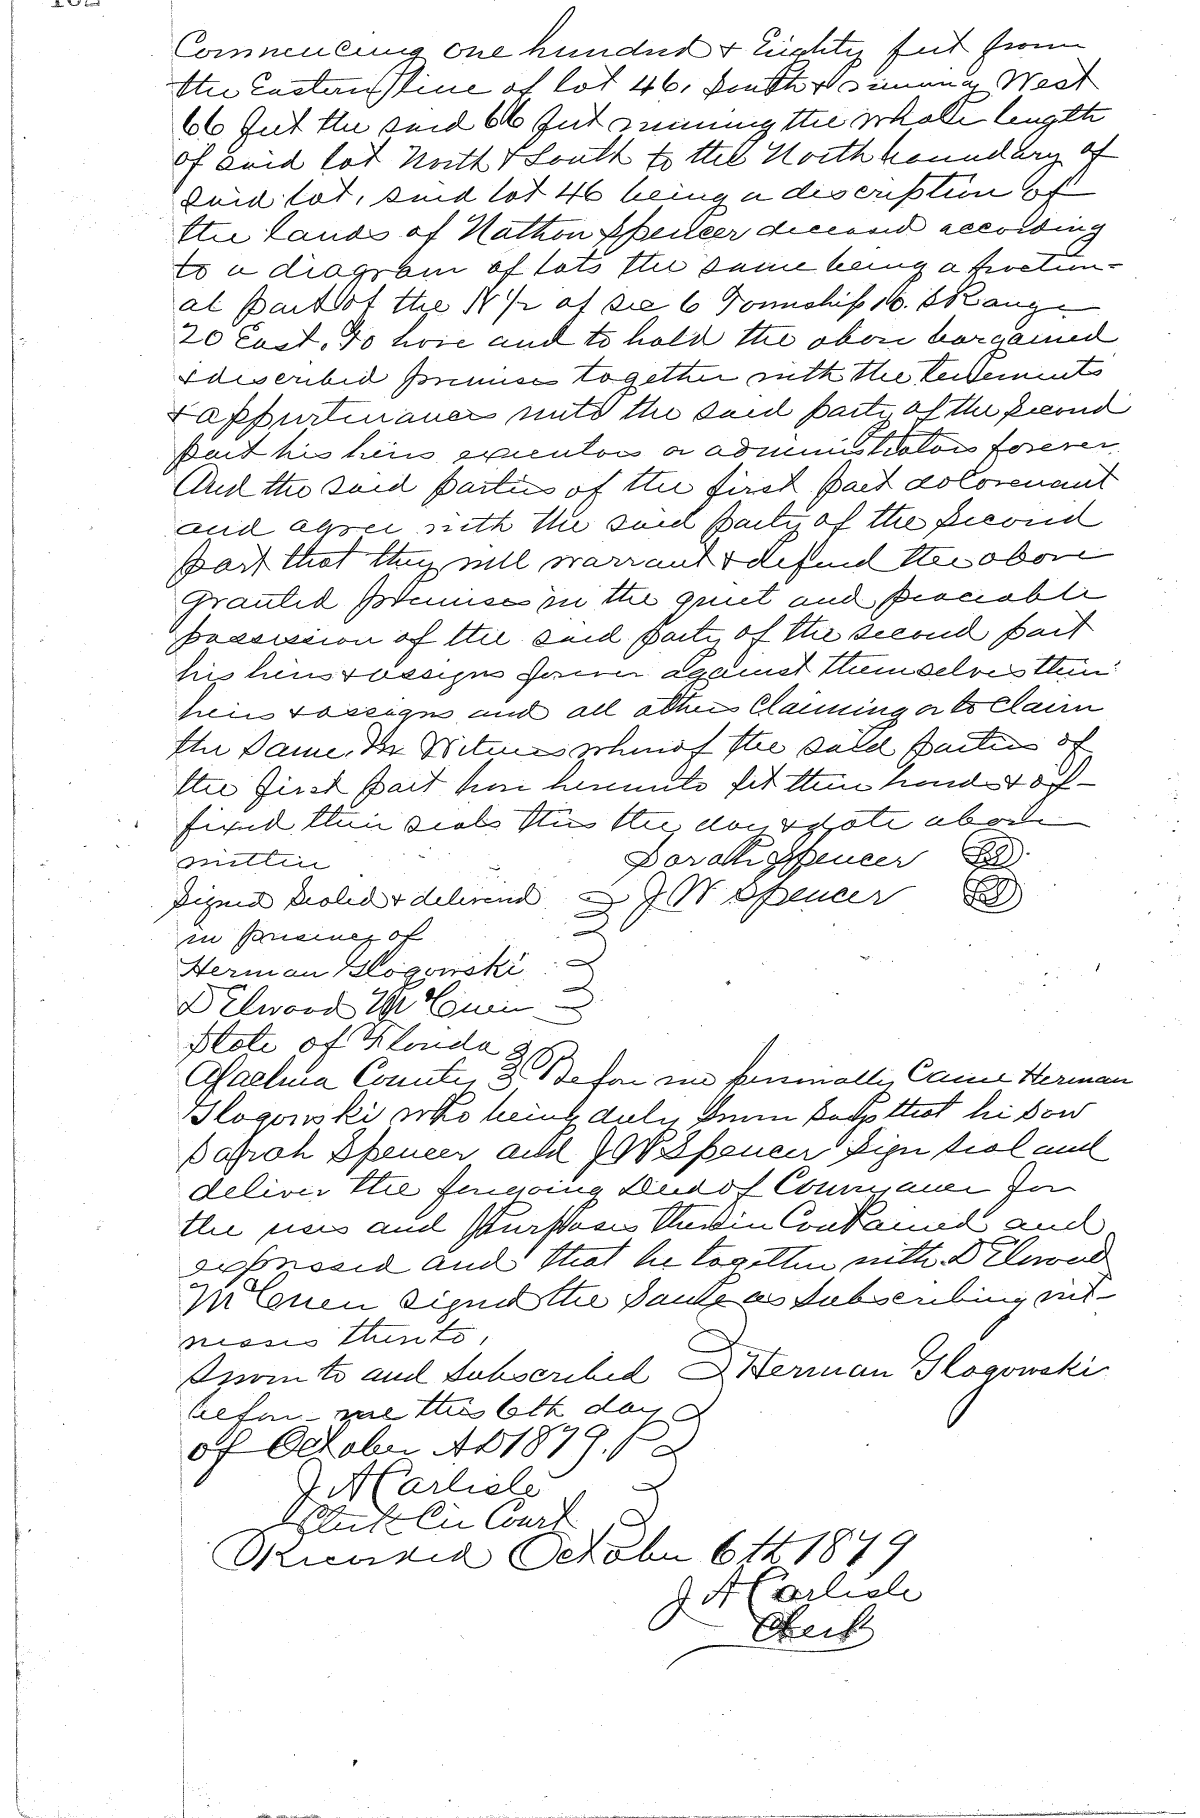 Commencing one hundred & Eighty feet from
the Eastern line of lot 46, South & running West
66 feet the said 66 feet running the whole length
of said lot North & South to the North boundary of
said lot, said lot 46 being a discription of
the lands of Nathon Spencer deceased according
to a diagram of lots the same being a fraction-
al part of the N 1/2 of sec 6 Township 10. S Range
20 East. To have and to hold the above bargained
& described premises together with the tenements
& appurtenances unto the said party of the second
part his heirs executors or administrators forever.
And the said parties of the first part do Covenant
and agree with the said party of the second
part that they will warrant & defend the above
granted premises in the quiet and peaceable
possession of the said party of the second part
his heirs & assigns forever against themselves their
heirs & assigns and all others Claiming or to Claim
the same. In Witness whereof the said parties of
the first part have hereunto set their hands & af-
fixed their seals this the day & date above
written Sarah Spencer
Signed Sealed & delivered J W Spencer
in presence of
Herman Glogowski
D Elwood McCuen
State of Florida
Alachua County Before me personally Came Herman
Glogowski who being duly sworn says that he saw
Sarah Spencer and J W Spencer sign seal and
deliver the foregoing Deed of Conveyance for
the uses and purposes therein Contained and
expressed and that he together with D Elwood
McCuen signed the same as Subscribing wit-
nesses thereto.
Sworn to and Subscribed Herman Glogowski
before me this 6th day
of October AD 1879.
J A Carlisle
Clerk Cir Court
Recorded October 6th 1879
J A Carlisle
Clerk